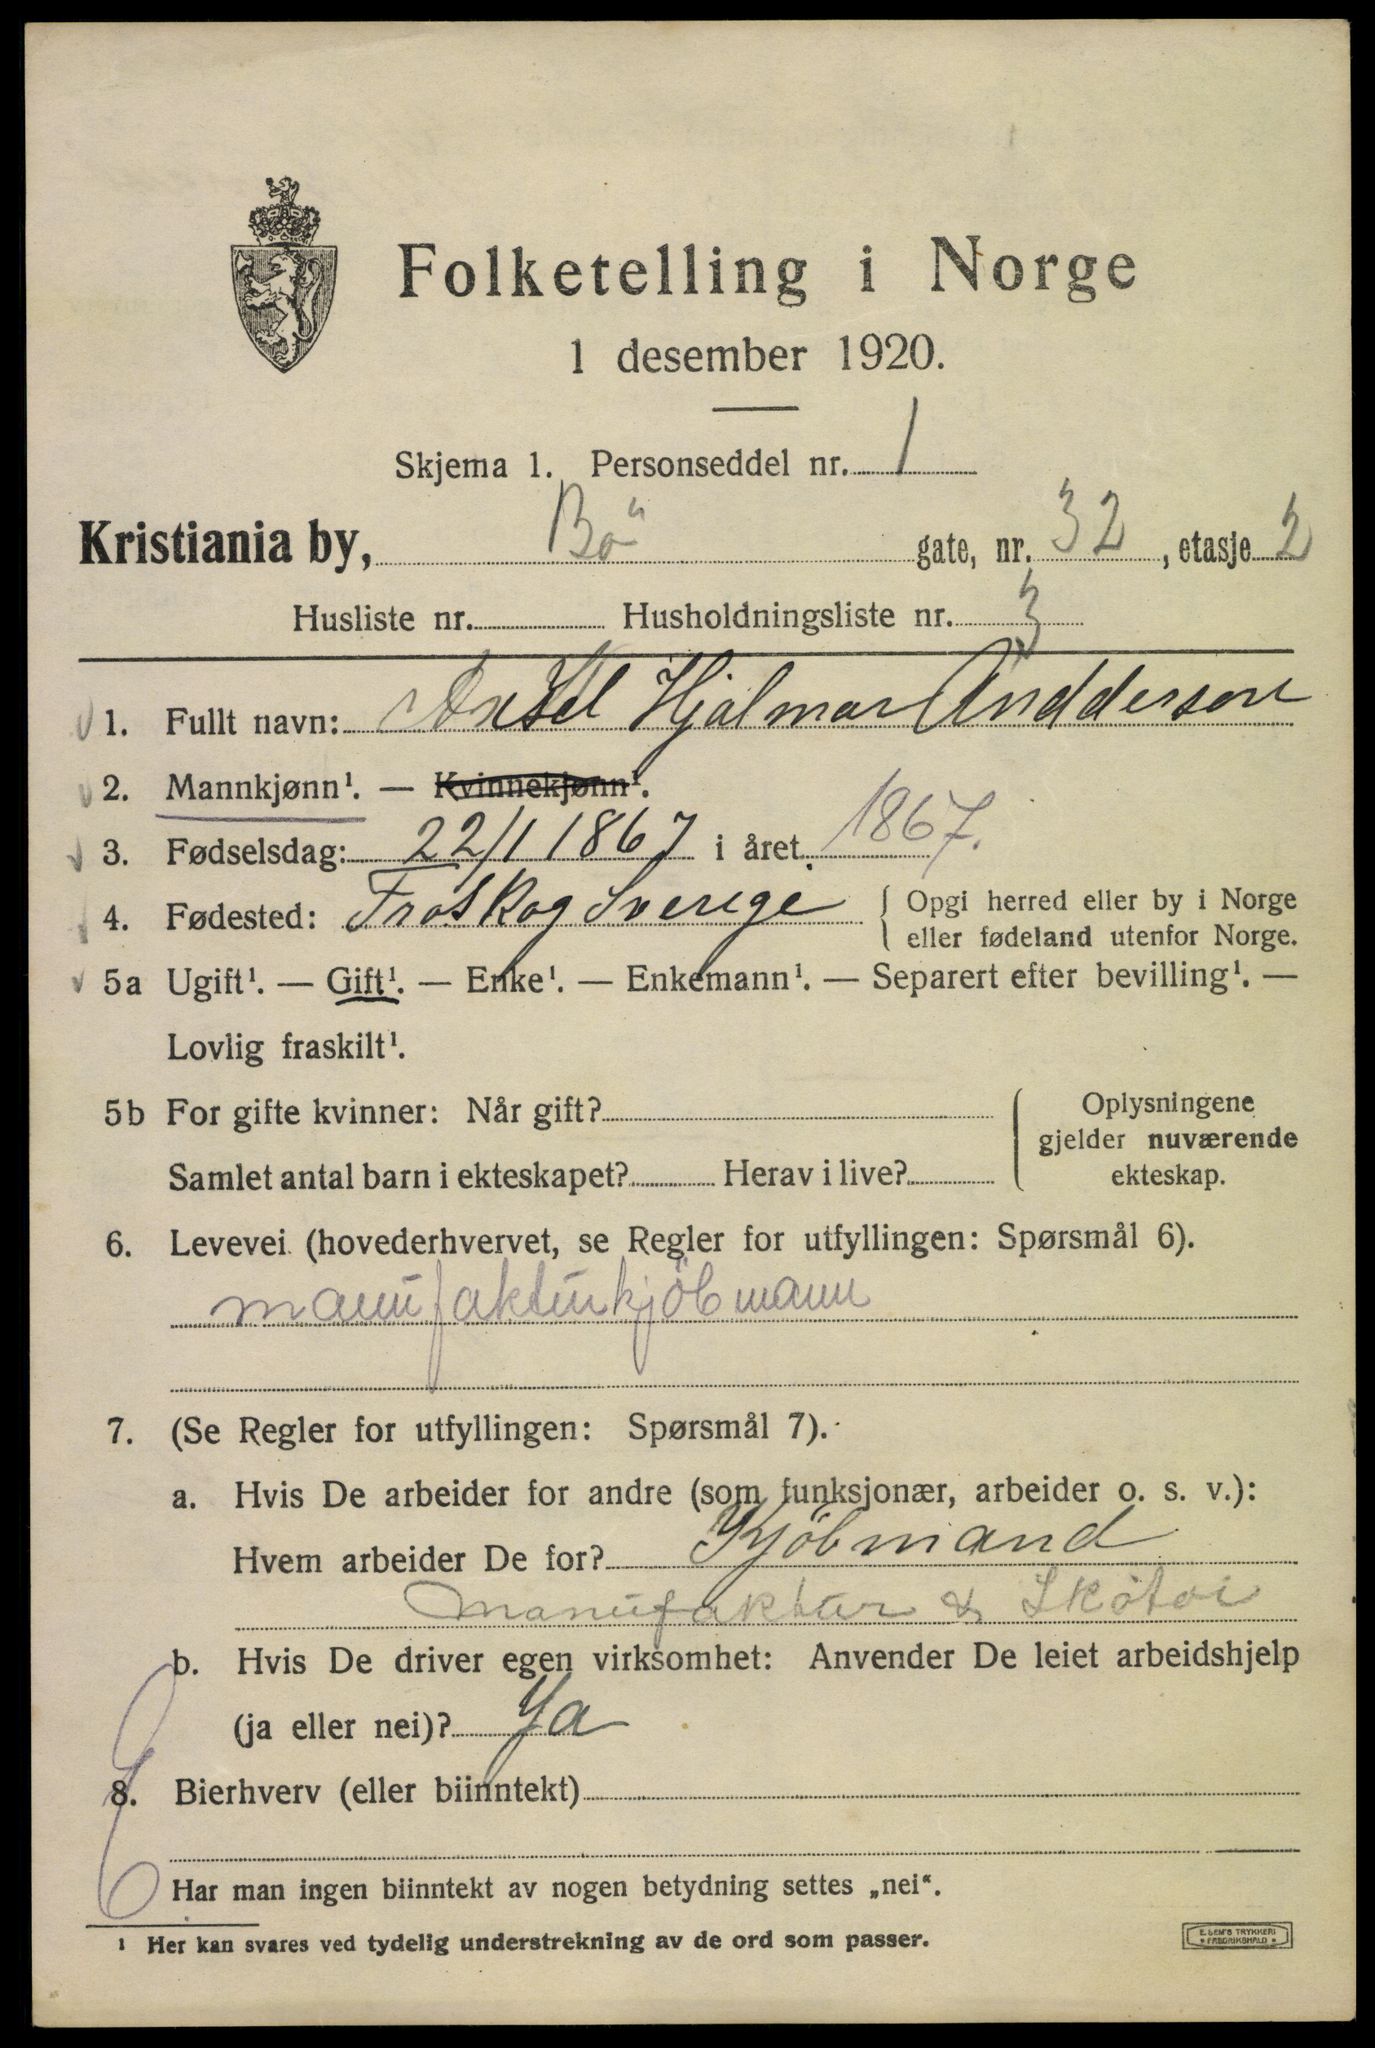 Folketelling i Norge
1 desember 1920.
Skjema 1. Personseddel nr. 1
Kristiania by, Bö gate, nr. 32, etasje 2
Husliste nr. Husholdningsliste nr. 3
1. Fullt navn: Axsel Hjalmar Andderson
2. Mannkjønn¹. — Kvinnekjønn¹.
3. Fødselsdag: 22/1 1867 i året 1867.
4. Fødested: Froskog Sverige { Opgi herred eller by i Norge
eller fødeland utenfor Norge.
5a Ugift¹. — Gift¹. — Enke¹. — Enkemann¹. — Separert efter bevilling¹. —
Lovlig fraskilt¹.
5b For gifte kvinner: Når gift? { Oplysningene
gjelder nuværende
Samlet antal barn i ekteskapet? Herav i live? ekteskap.
6. Levevei (hovederhvervet, se Regler for utfyllingen: Spørsmål 6).
manufakturkjöbmann
7. (Se Regler for utfyllingen: Spørsmål 7).
a. Hvis De arbeider for andre (som funksjonær, arbeider o. s. v.):
Hvem arbeider De for? Kjöbmand
manufaktur & Skötoi
b. Hvis De driver egen virksomhet: Anvender De leiet arbeidshjelp
(ja eller nei)? Ja
8. Bierhverv (eller biinntekt)
Har man ingen biinntekt av nogen betydning settes „nei“.
¹ Her kan svares ved tydelig understrekning av de ord som passer.
E. SEM'S TRYKKERI
* FREDRIKSHALD *